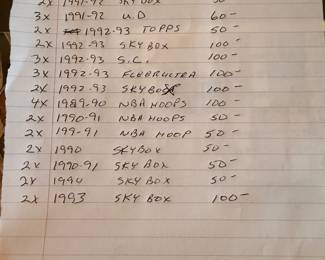 2x 1991-92 SKYBOX 50-
3x 1991-92 U.D 60-
2x 1992-93 TOPPS 50-
2x 1992-93 SKYBOX 100-
3x 1992-93 S.C. 100-
3x 1992-93 FLEERULTRA 100-
2x 1992-93 SKYBOX 100-
4x 1989-90 NBA HOOPS 100-
2x 1990-91 NBA HOOPS 50-
2x 199-91 NBA HOOP 50-
2x 1990 SKYBOX 50-
2x 1990-91 SKY BOX 50-
2x 1990 SKY BOX 50-
2x 1993 SKY BOX 100-